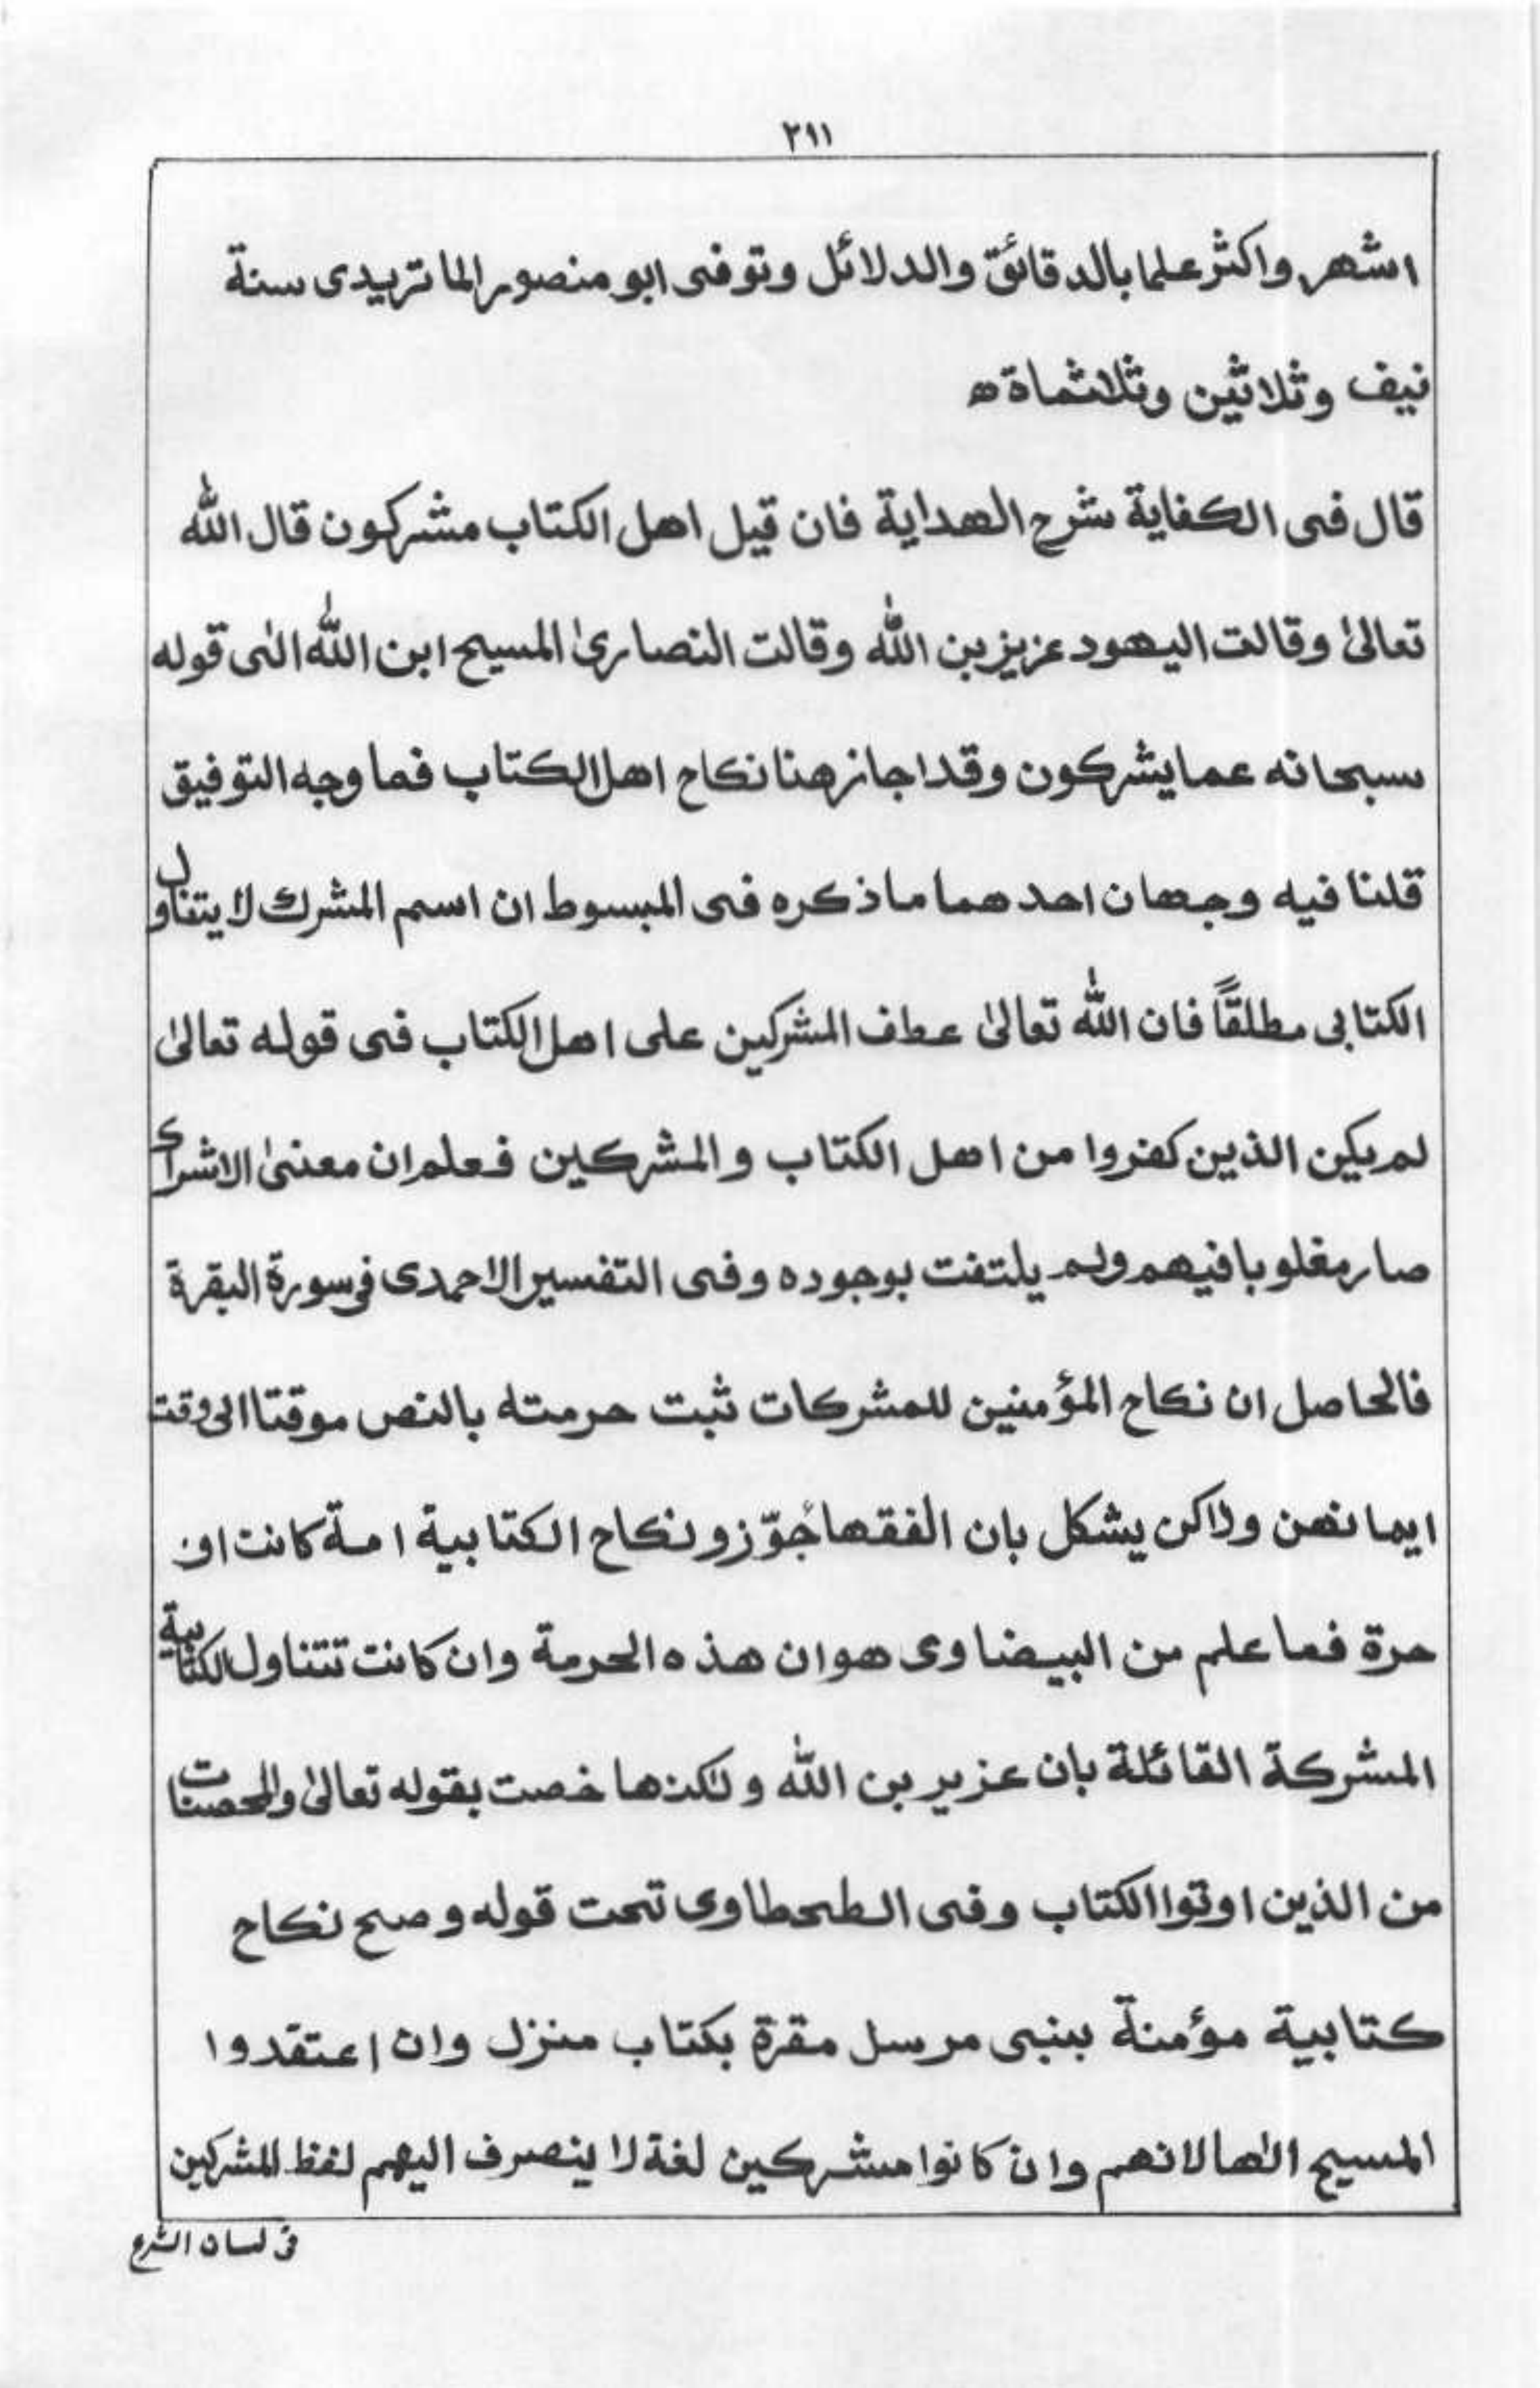 ٢٩١
اشهر واكثر علما بالدقائق والدلائل وتوفى ابو منصور الماتريدى سنة
نيف وثلاثين وثلاثماة ه
قال فى الكفاية شرح الهداية فان قيل اهل الكتاب مشركون قال الله
تعالىٰ وقالت اليهود عزيز بن الله وقالت النصارىٰ المسيح ابن الله الىٰ قوله
سبحانه عما يشركون وقد اجاز هنا نكاح اهل الكتاب فما وجه التوفيق
قلنا فيه وجهان احدهما ما ذكره فى المبسوط ان اسم المشرك لا يتناول
الكتابى مطلقاً فان الله تعالىٰ عطف المشركين على اهل الكتاب فى قوله تعالىٰ
لم يكن الذين كفروا من اهل الكتاب والمشركين فعلم ان معنىٰ الاشراك
صار مغلوبا فيهم ولم يلتفت بوجوده وفى التفسير الاحمدى فى سورة البقرة
فالحاصل ان نكاح المؤمنين للمشركات ثبت حرمته بالنص موقتا الى وقت
ايمانهن ولاكن يشكل بان الفقهاء جوّزو نكاح الكتابية امة كانت او
حرة فما علم من البيضاوى هو ان هذه الحرمة وان كانت تتناول الكتابية
المشركة القائلة بان عزير بن الله ولٰكنها خصت بقوله تعالىٰ والمحصنات
من الذين اوتوا الكتاب وفى الطحطاوى تحت قوله وصح نكاح
كتابية مؤمنة بنبى مرسل مقرة بكتاب منزل وان اعتقدوا
المسيح الٰها لانهم وان كانوا مشركين لغة لا ينصرف اليهم لفظ المشركين
فى لسان الشرع